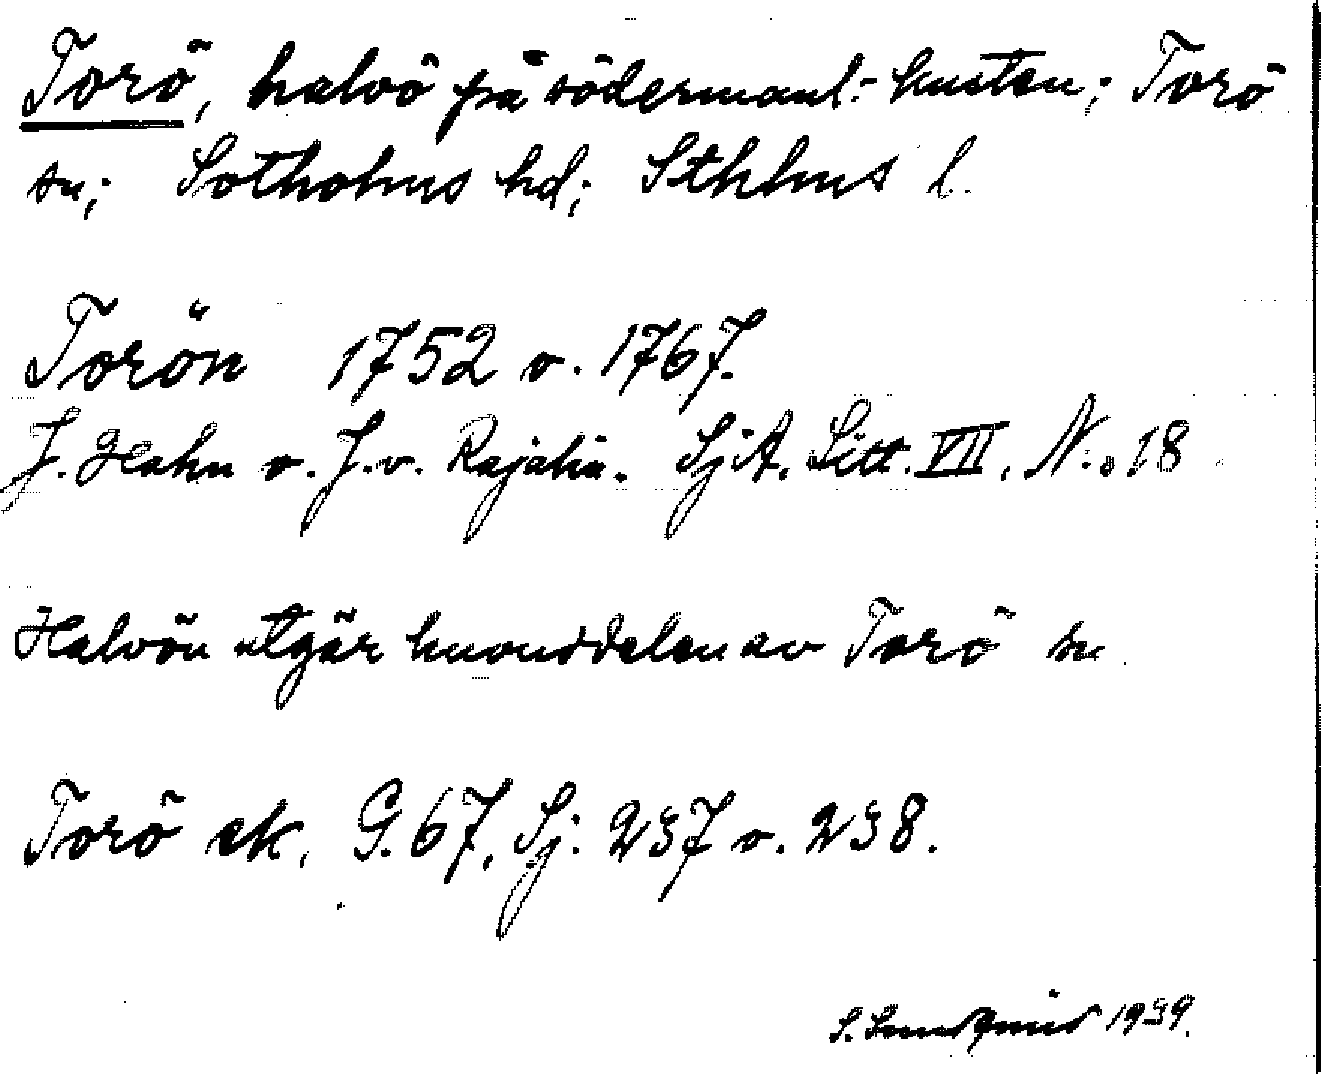 Torö, halvö på södermanl:kusten; Torö
sn; Sotholms hd; Sthlms l.
Torön 1752 o. 1767.
J. Hahn o. J. v. Rajalin. SjA. Litt. VII, N:o 18
Halvön utgör huvuddelen av Torö sn
Torö ek, G. 67, Sj. 237 o. 238.
S. Sundqvist 1939.